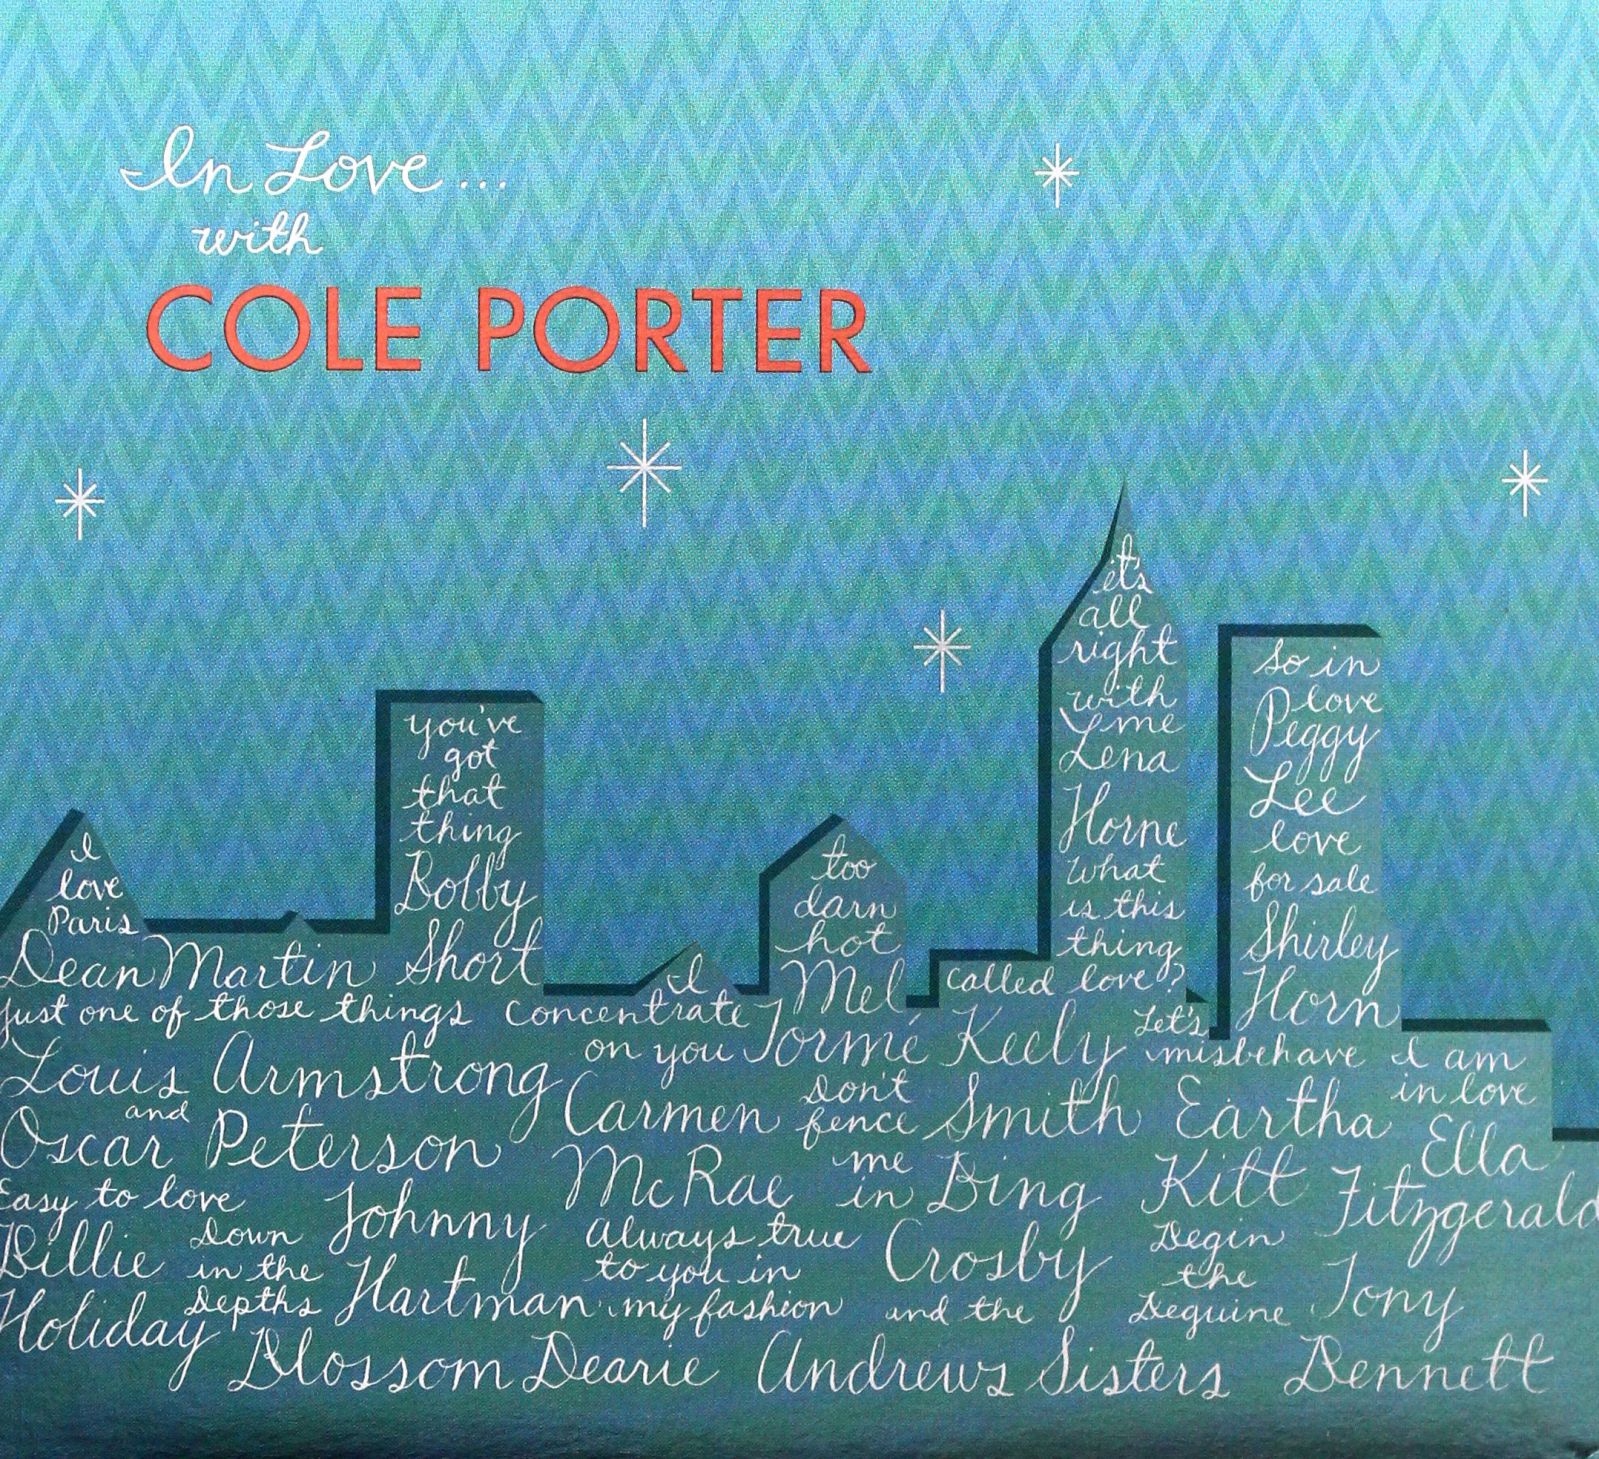 In Love...
with
COLE PORTER
I
love
Paris
Dean Martin
you've
got
that
thing
Bobby
Short
just one of those things
Louis Armstrong
and
Oscar Peterson
I
concentrate
on you
Carmen
McRae
too
darn
hot
Mel
Tormé
it's
all
right
with
me
Lena
Horne
what
is this
thing
called love?
Keely
Smith
so in
love
Peggy
Lee
love
for sale
Shirley
Horn
Let's
misbehave
Eartha
Kitt
I am
in love
Ella
Fitzgerald
Easy to love
Billie
Holiday
Down
in the
Depths
Johnny
Hartman
always true
to you in
my fashion
Blossom Dearie
Don't
fence
me
in
Bing
Crosby
and the
Andrews Sisters
Begin
the
Beguine
Tony
Bennett